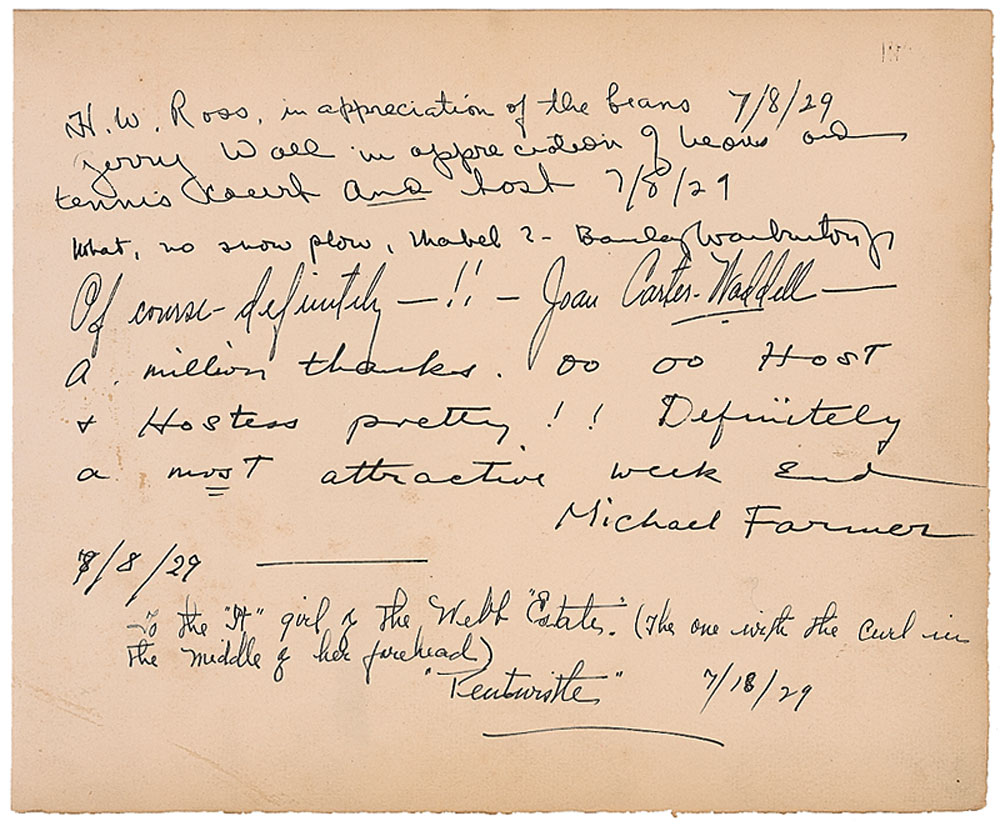 H. W. Ross, in appreciation of the beans 7/8/29
Jerry Wall in appreciation of beans and
tennis court and host 7/8/29
What, no snow plow, Mabel? - Barclay Warburton Jr
Of course - definitely - !! - Joan Carter-Waddell -
A. million thanks. oo oo Host
+ Hostess pretty!! Definitely
a most attractive week End
Michael Farmer
7/8/29
To the "It" girl of the Webb "Estate". (The one with the curl in
the middle of her forehead)
"Pentwistle" 7/18/29